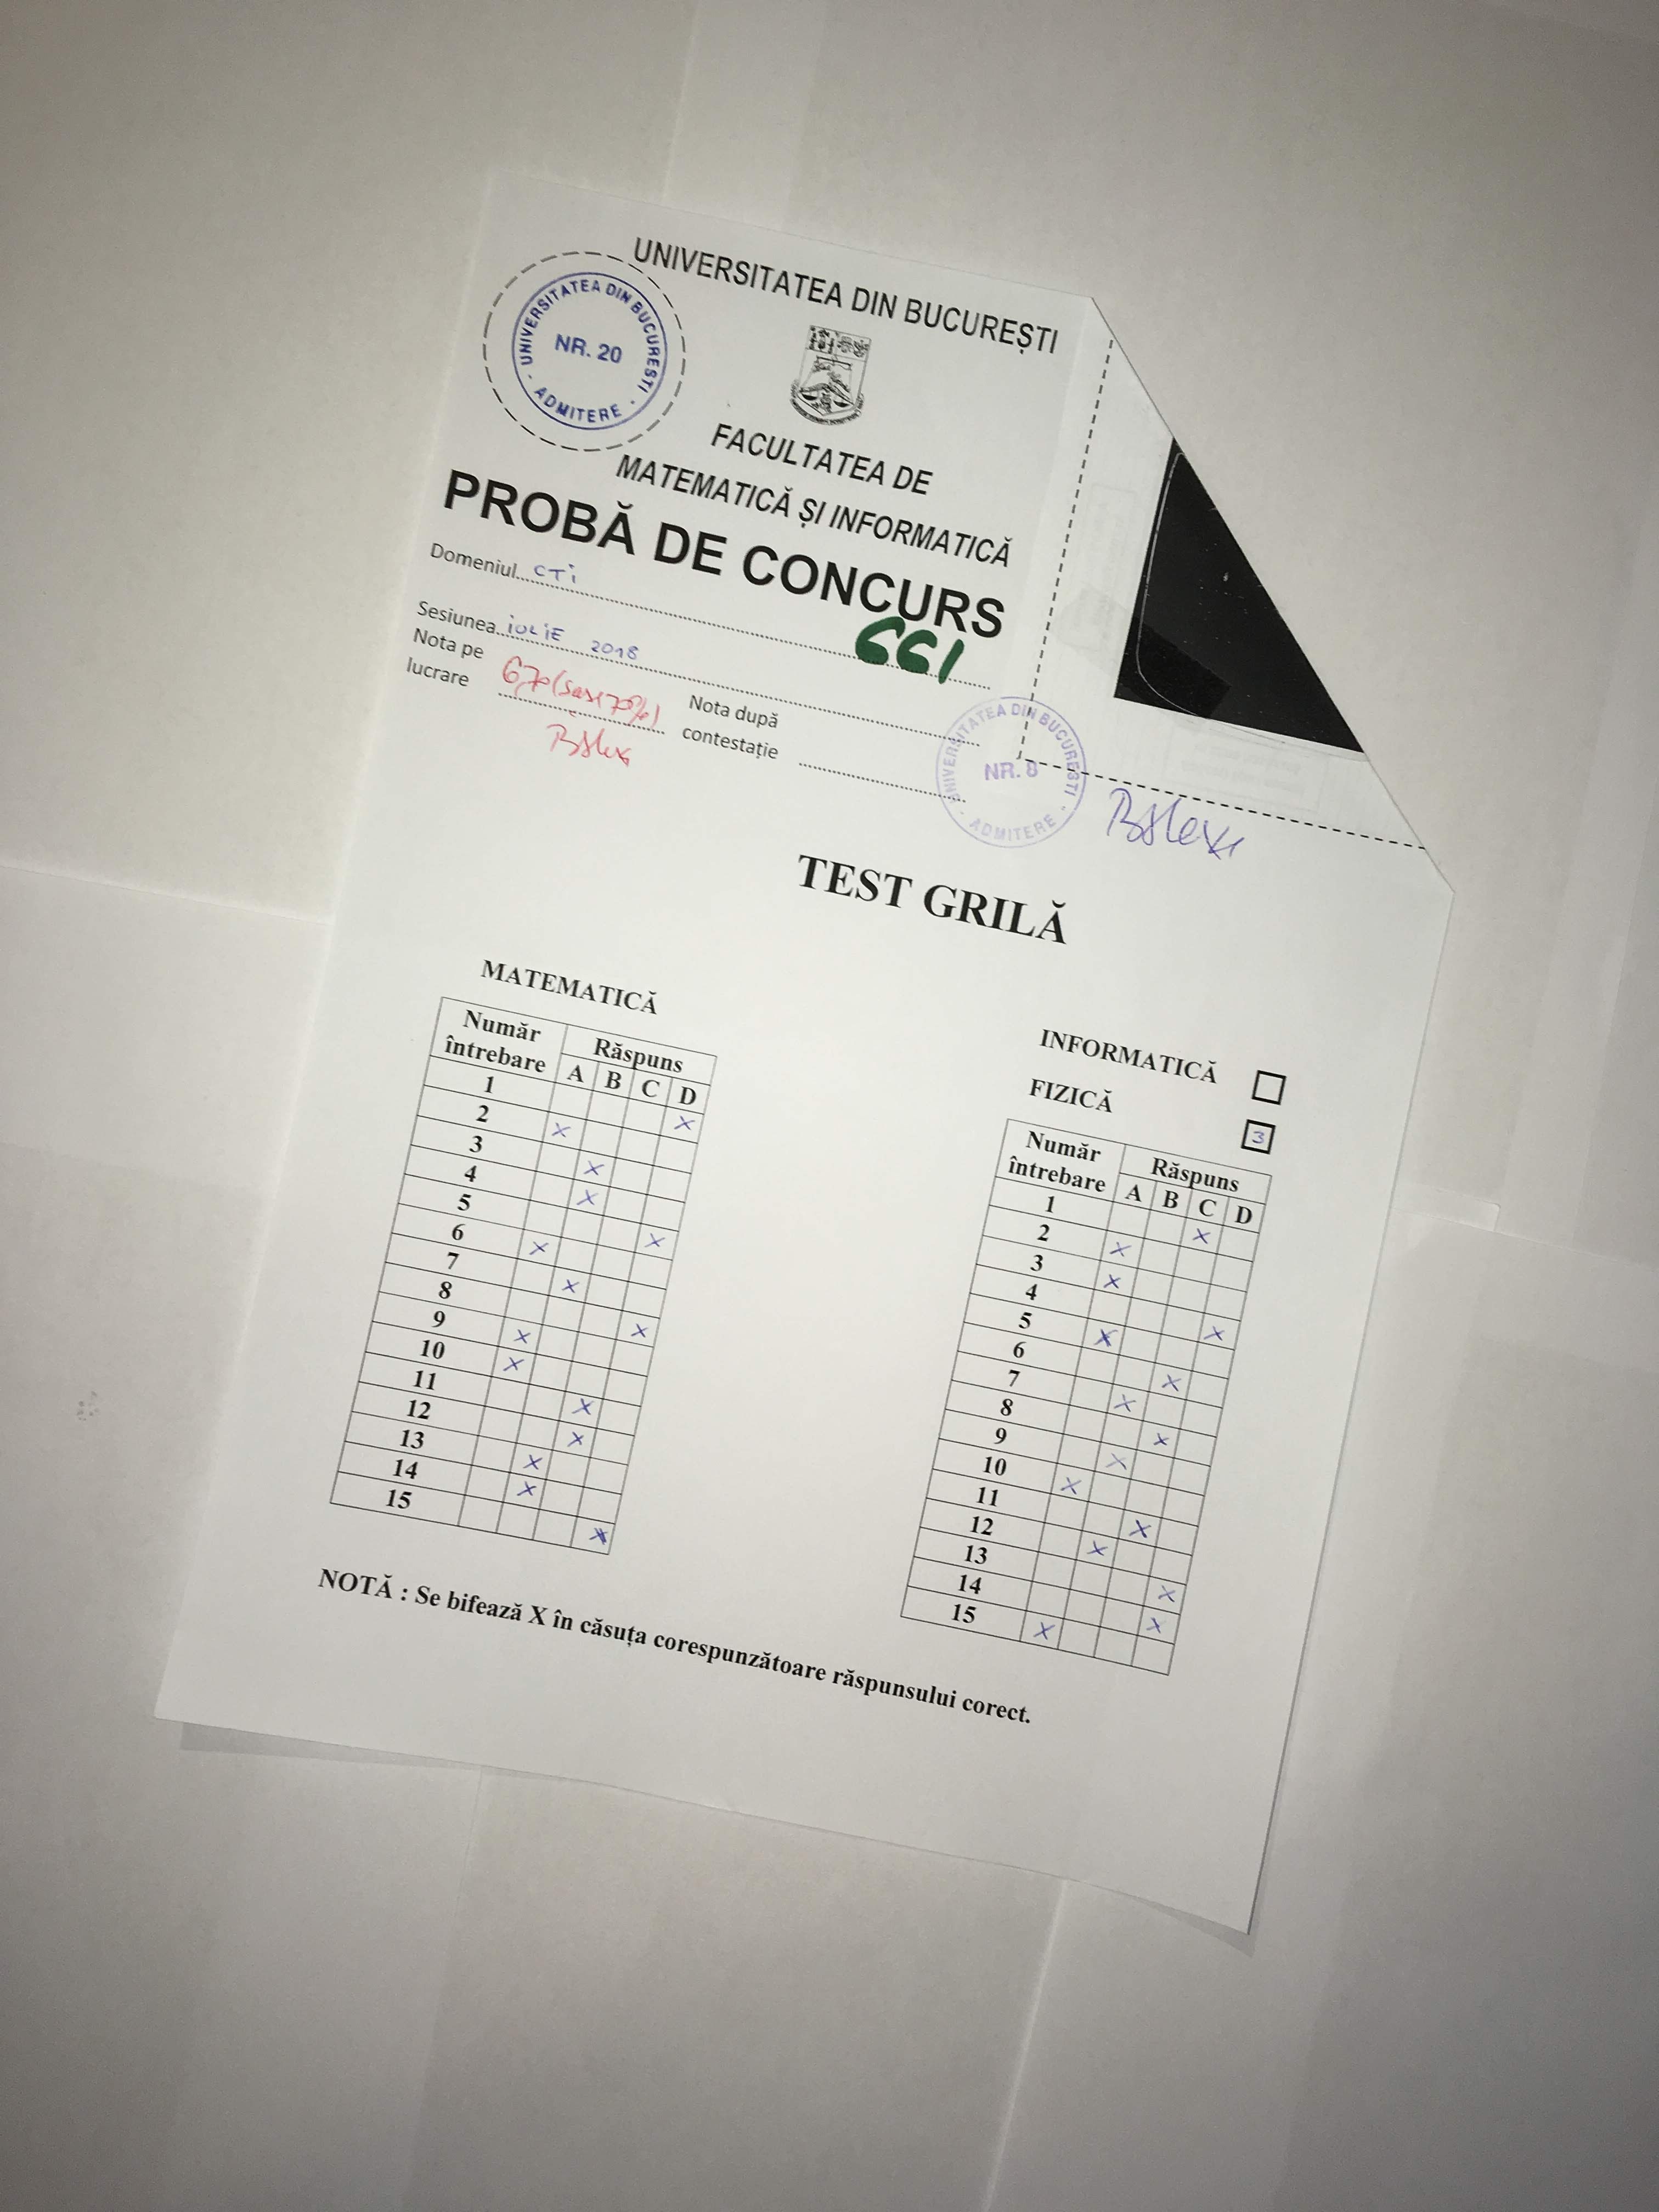 UNIVERSITATEA DIN BUCUREȘTI
UNIVERSITATEA DIN BUCURESTI
NR. 20
ADMITERE
FACULTATEA DE
MATEMATICĂ ȘI INFORMATICĂ
PROBĂ DE CONCURS
Domeniul CTi
661
Sesiunea iULiE 2018
Nota pe
lucrare 6,70 (șase 70%)
Nota după
contestație
UNIVERSITATEA DIN BUCURESTI
NR. 8
ADMITERE
TEST GRILĂ
MATEMATICĂ
Număr
întrebare
Răspuns
A B C D
1 X
2 X
3 X
4 X
5 X
6 X
7 X
8 X
9 X
10 X
11 X
12 X
13 X
14 X
15 X
INFORMATICĂ
FIZICĂ 3
Număr
întrebare
Răspuns
A B C D
1 X
2 X
3 X
4 X
5 X
6 X
7 X
8 X
9 X
10 X
11 X
12 X
13 X
14 X
15 X
NOTĂ : Se bifează X în căsuța corespunzătoare răspunsului corect.